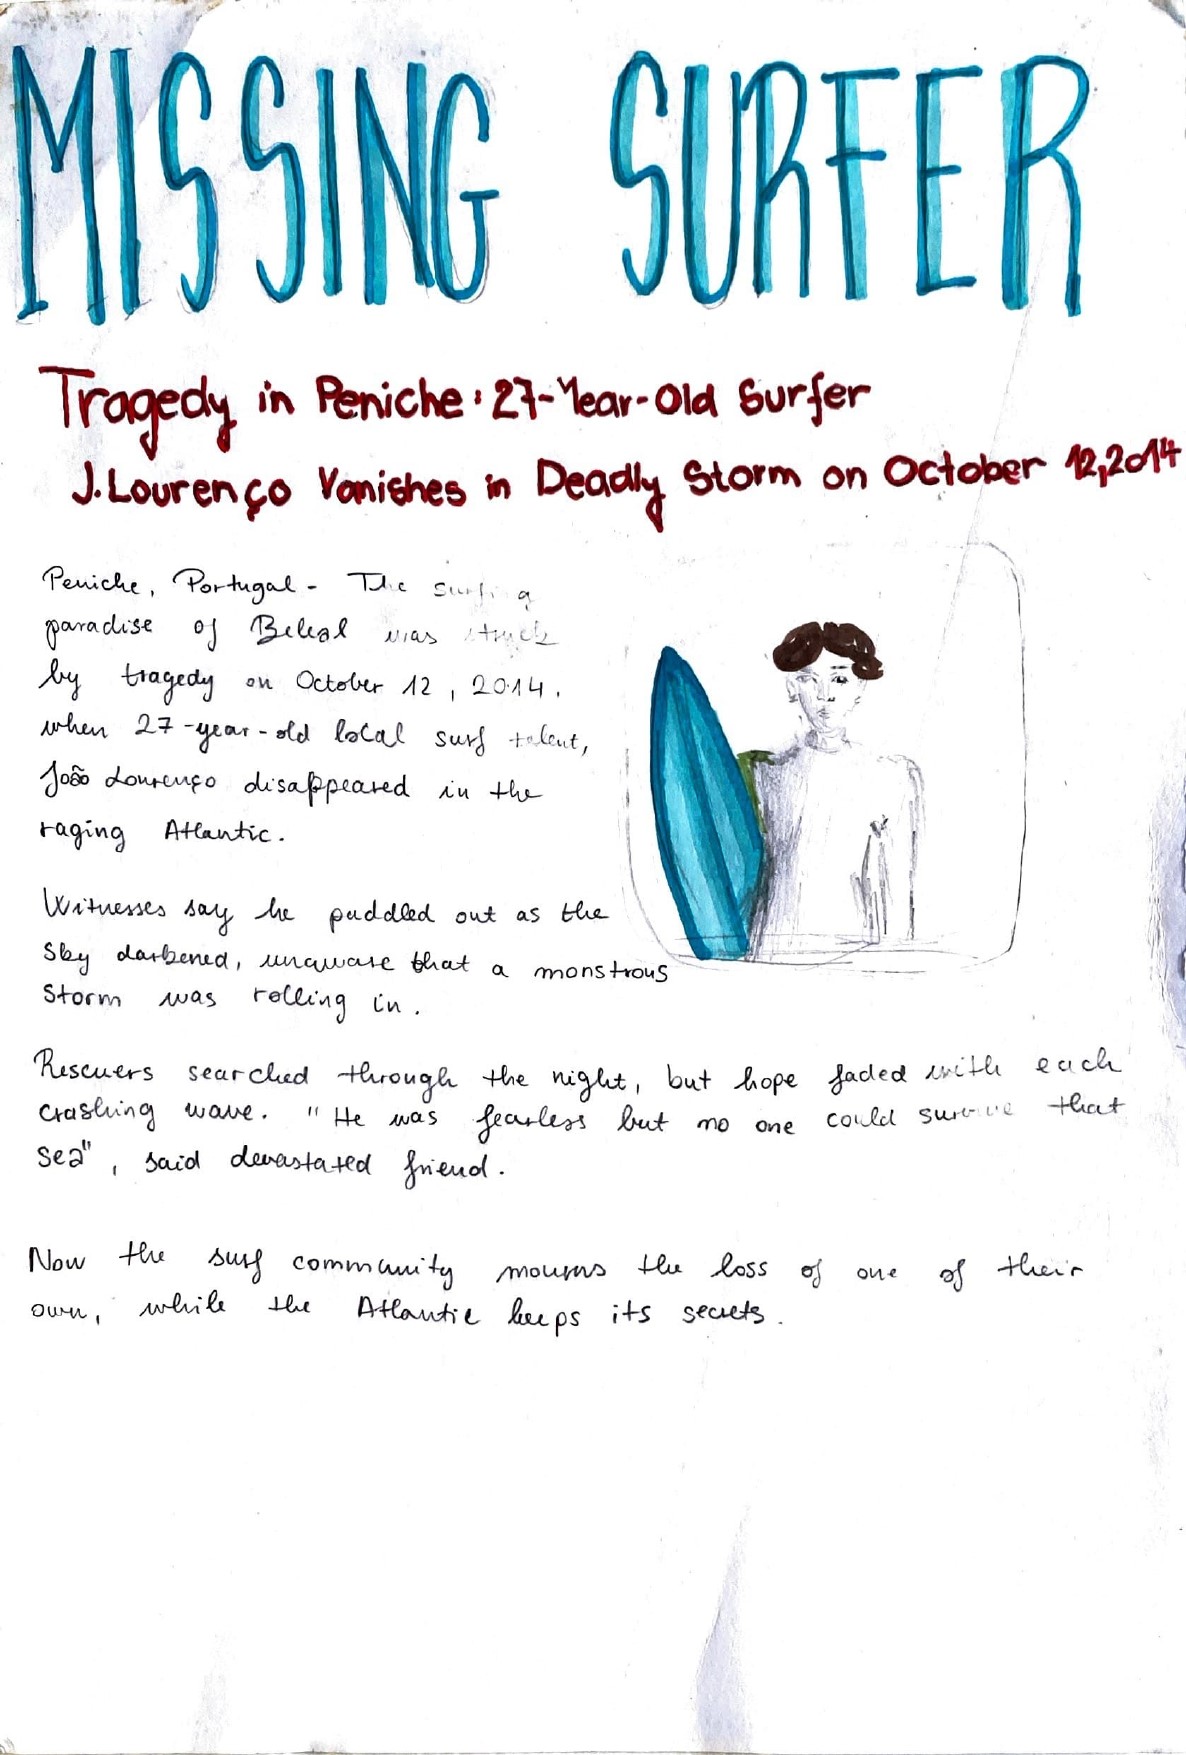 MISSING SURFER
Tragedy in Peniche: 27-Year-Old Surfer
J. Lourenço Vanishes in Deadly Storm on October 12, 2014
Peniche, Portugal - The surfing
paradise of Baleal was struck
by tragedy on October 12, 2014,
when 27-year-old local surf talent,
João Lourenço disappeared in the
raging Atlantic.
Witnesses say he paddled out as the
sky darkened, unaware that a monstrous
storm was rolling in.
Rescuers searched through the night, but hope faded with each
crashing wave. "He was fearless but no one could survive that
sea", said devastated friend.
Now the surf community mourns the loss of one of their
own, while the Atlantic keeps its secrets.